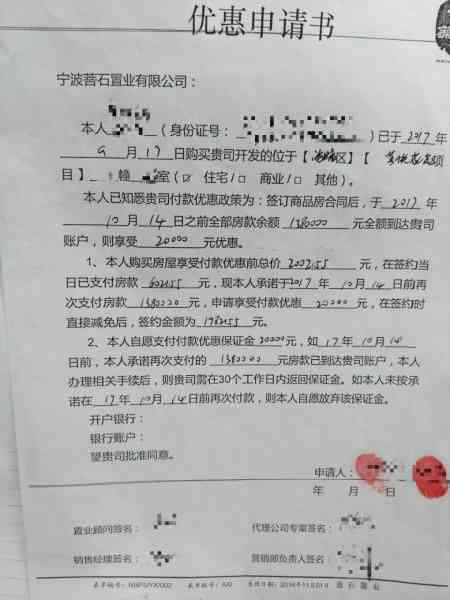 优惠申请书
宁波菩石置业有限公司：
本人（身份证号：）已于2017年
9月17日购买贵司开发的位于【区】【项
目】幢室（☑住宅/□商业/□其他）。
本人已知悉贵司付款优惠政策为：签订商品房合同后，于2017年
10月14日之前全部房款余额1380000元全额到达贵司
账户，则享受20000元优惠。
1、本人购买房屋享受付款优惠前总价2002155元，在签约当
日已支付房款602155元，现本人承诺于2017年10月14日前再
次支付房款1380000元，申请享受付款优惠20000元，在签约时
直接减免后，签约金额为1982155元。
2、本人自愿支付付款优惠保证金20000元，如17年10月14
日前，本人承诺再次支付的1380000元房款已到达贵司账户，本人
办理相关手续后，则贵司需在30个工作日内返回保证金。如本人未按承
诺在17年10月14日前再次付款，则本人自愿放弃该保证金。
开户银行：
银行账户：
望贵司批准同意。
申请人：
年 月 日
置业顾问签名：
代理公司专案签名：
销售经理签名：
营销部负责人签名：